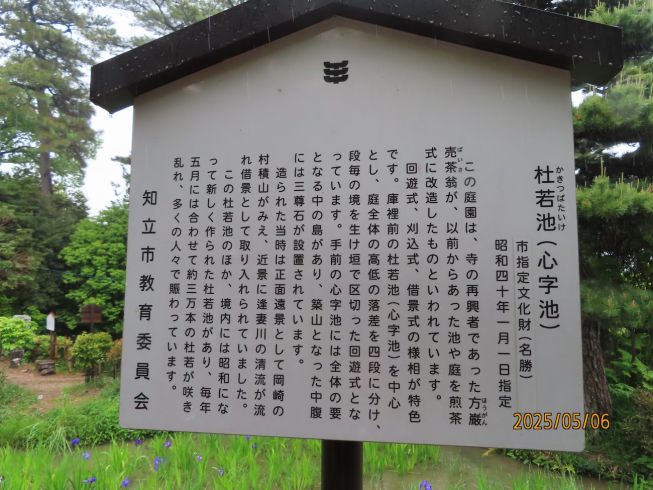 杜若池(心字池)
かきつばたいけ
市指定文化財(名勝)
昭和四十年一月一日指定
この庭園は、寺の再興者であった方巌
ほうがん
売茶翁が、以前からあった池や庭を煎茶
ばいさ
式に改造したものといわれています。
回遊式、刈込式、借景式の様相が特色
です。庫裡前の杜若池(心字池)を中心
とし、庭全体の高低の落差を四段に分け、
段毎の境を生け垣で区切った回遊式とな
っています。手前の心字池には全体の要
となる中の島があり、築山となった中腹
には三尊石が設置されています。
造られた当時は正面遠景として岡崎の
村積山がみえ、近景に逢妻川の清流が流
れ借景として取り入れられていました。
この杜若池のほか、境内には昭和にな
って新しく作られた杜若池があり、毎年
五月には合わせて約三万本の杜若が咲き
乱れ、多くの人々で賑わっています。
知立市教育委員会
2025/05/06